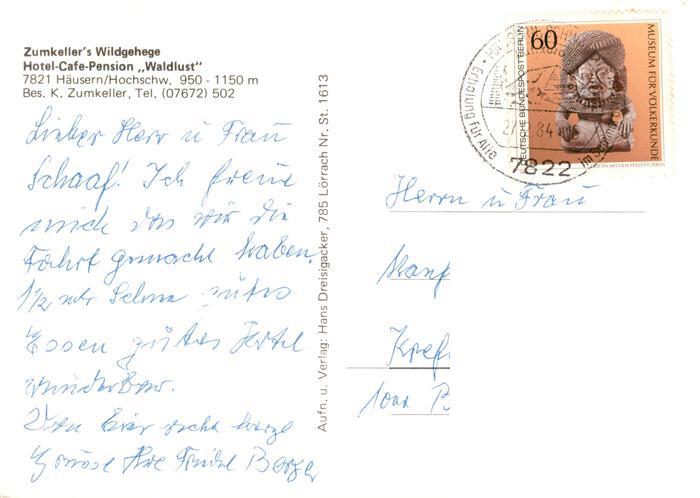 Zumkeller's Wildgehege
Hotel-Cafe-Pension „Waldlust"
7821 Häusern/Hochschw. 950 - 1150 m
Bes. K. Zumkeller, Tel. (07672) 502
Lieber Herr u Frau
Schaaf! Ich freue
mich das wir die
Fahrt gemacht haben.
1/2
Essen gutes Hotel
wunderbar.
Von hier recht herzl
Grüsse Ihre
Aufn. u. Verlag: Hans Dreisigacker, 785 Lörrach Nr. St. 1613
60
DEUTSCHE BUNDESPOST BERLIN
MUSEUM FÜR VÖLKERKUNDE
Erholung für Alle
84
7822
Herrn u Frau
Kref